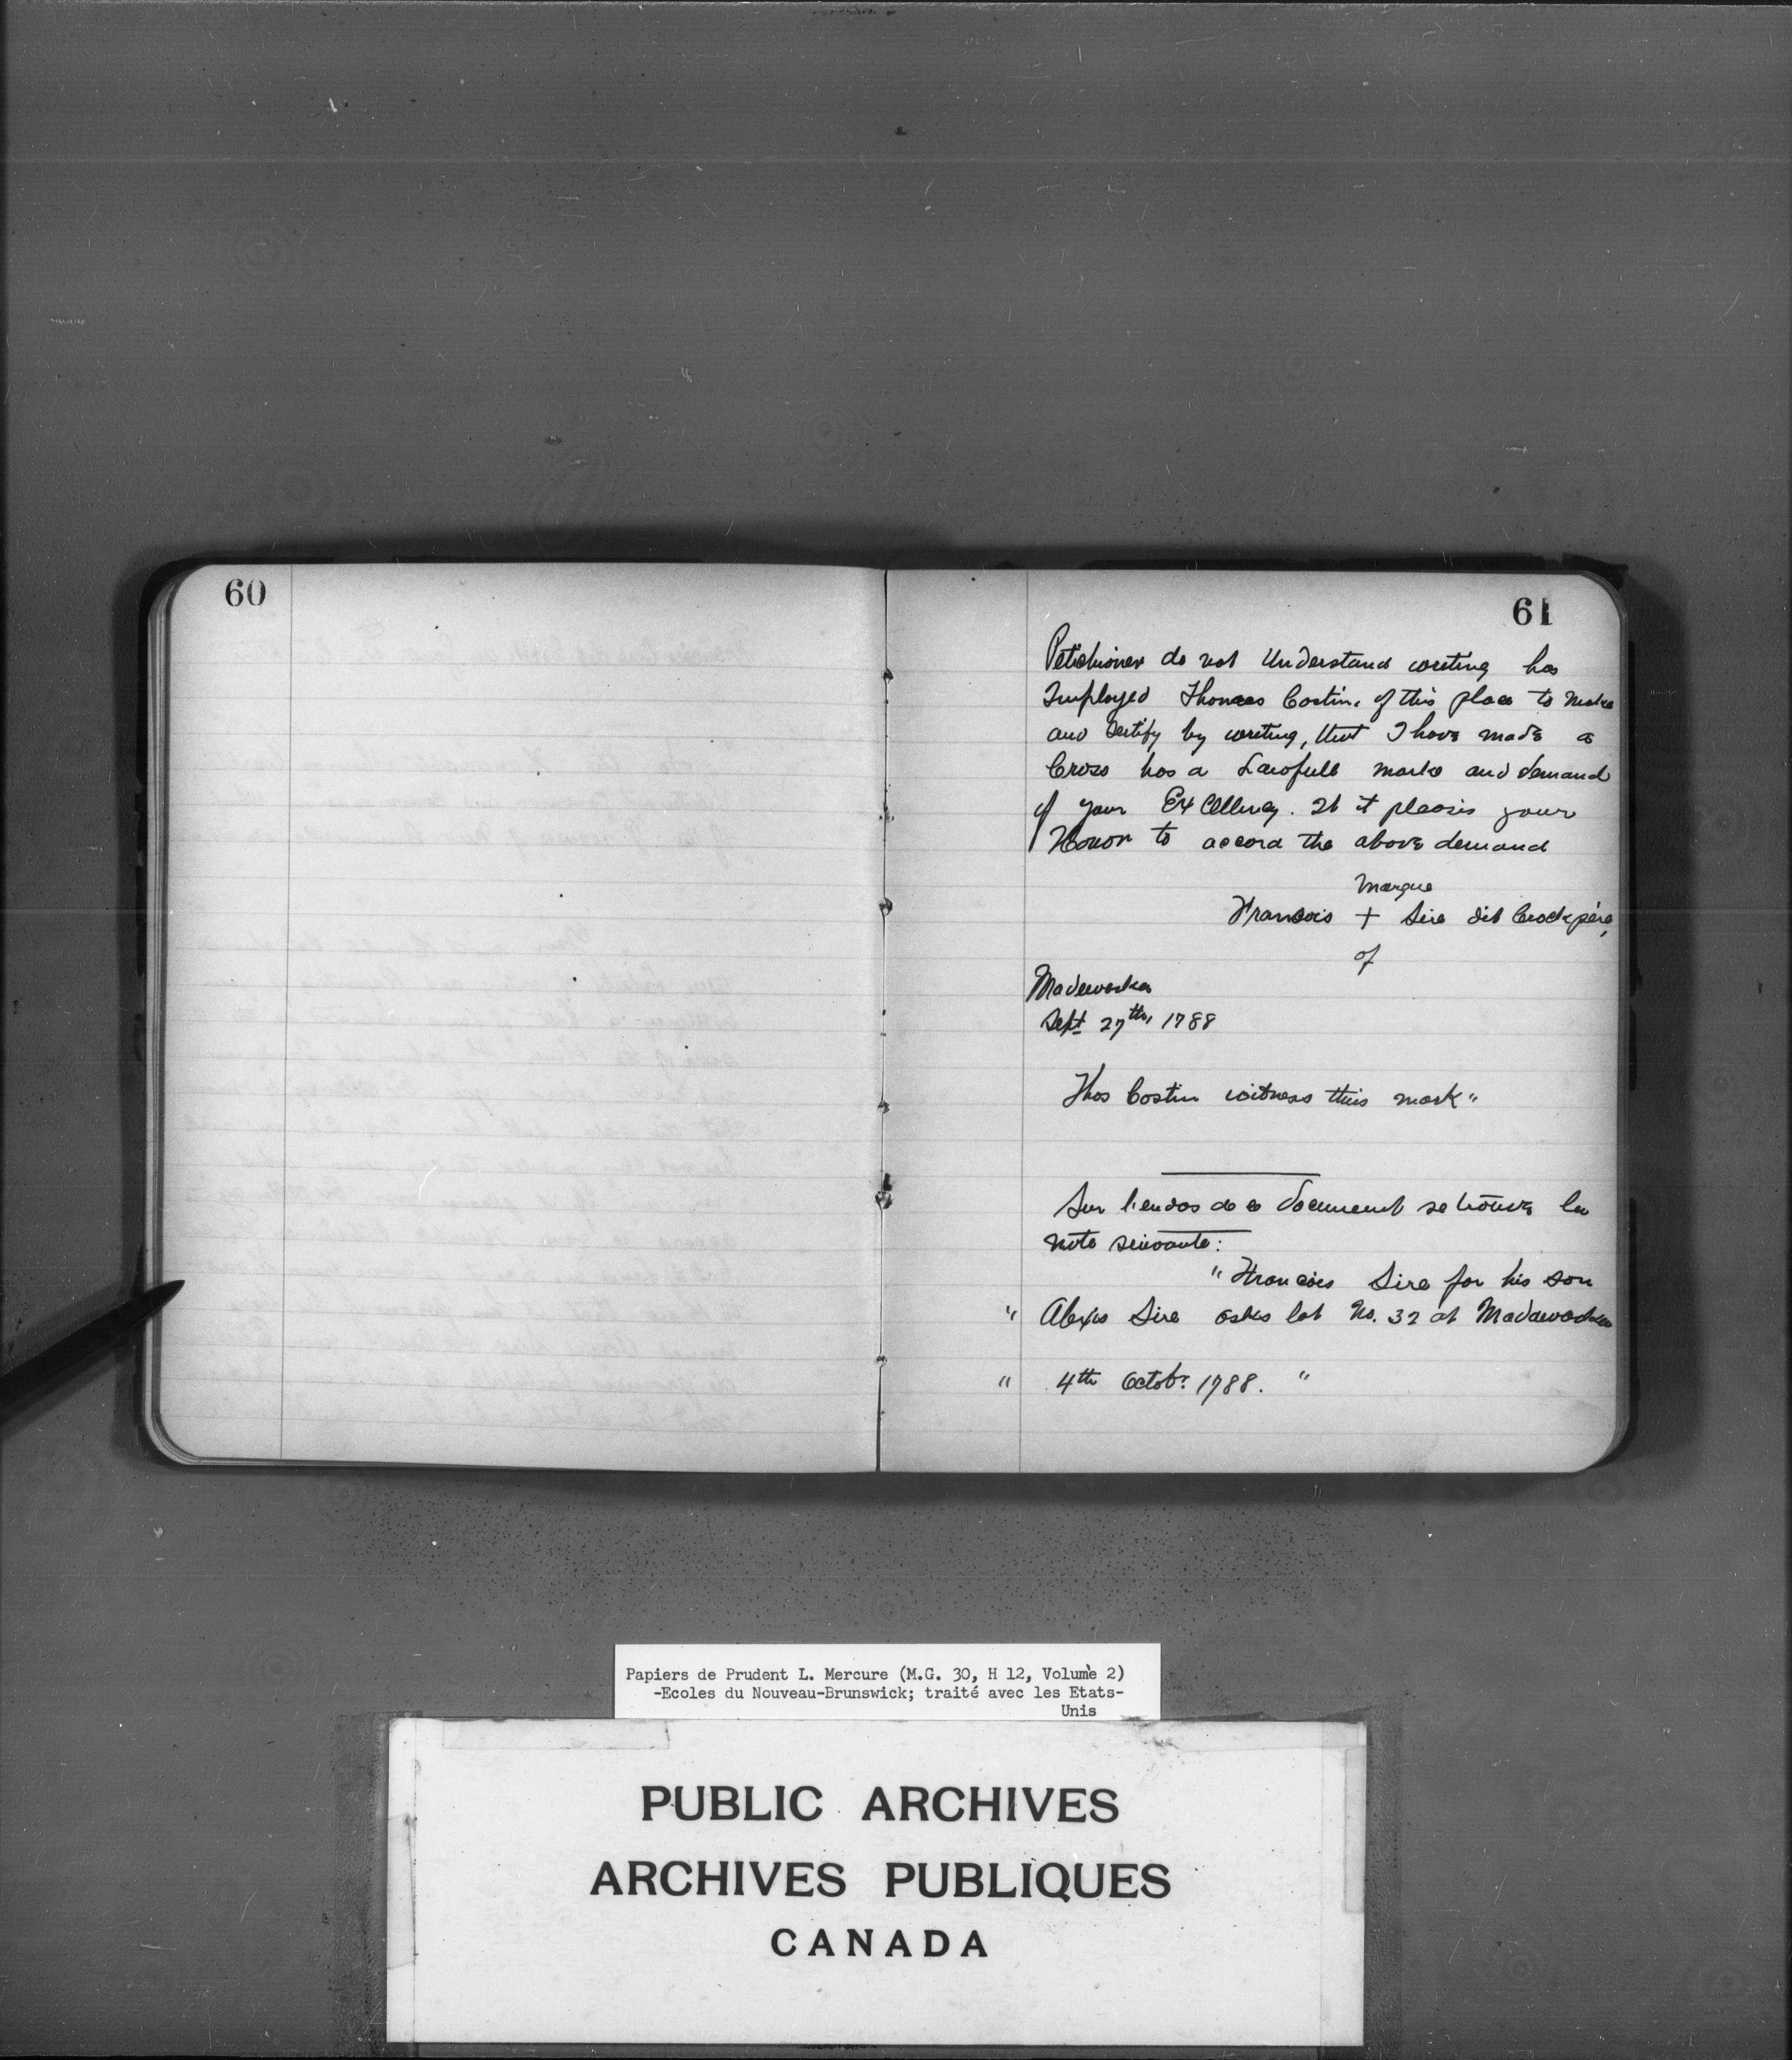 60
61
Petichioner do not Understand writing has
Imployed Thomas Costin, of this place to make
and Sertify by writing, that I have made a
Cross has a Lawfull marke and demand
of your Excellency. If it pleasis your
Honor to accord the above demand
Marque
Francois + Sire dit Crock père,
of
Madawaska
Sept 27th, 1788
Thos Costin witness this mark"
Sur l'endos de ce document se trouve la
note suivante:
"Francois Sire for his son
" Alexis Sire asks lot No. 32 at Madawaska
" 4th Octobr 1788. "
Papiers de Prudent L. Mercure (M.G. 30, H 12, Volume 2)
-Ecoles du Nouveau-Brunswick; traité avec les Etats-
Unis
PUBLIC ARCHIVES
ARCHIVES PUBLIQUES
CANADA